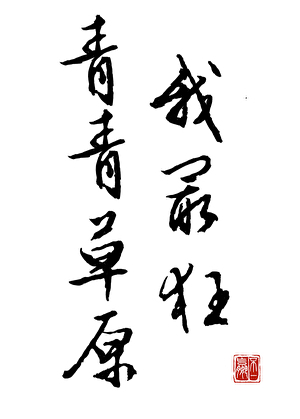 我最狂
青青草原